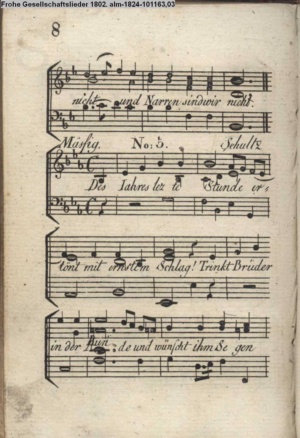 Frohe Gesellschaftslieder 1802. alm-1824-101163,03
8
nicht und Narren sind wir nicht.
Mäsig. No: 5. Schultz
Des Iahres lez te Stunde er=
tönt mit ernstem Schlag! Trinkt Brüder
in der Run= de und wünscht ihm Se gen